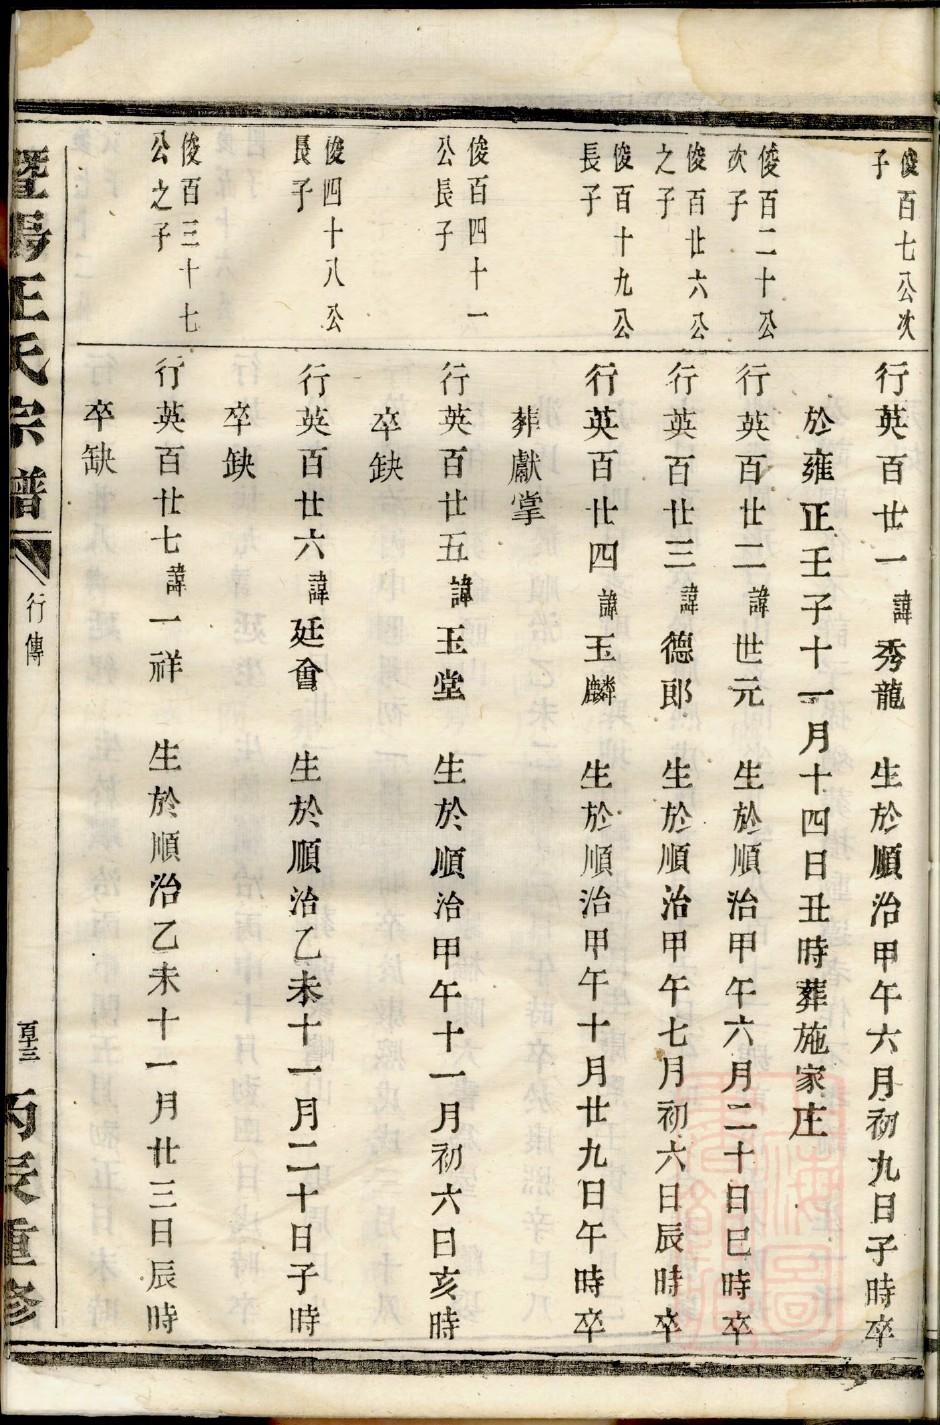 俊百七公次
子
行英百廿一諱秀龍　生於順治甲午六月初九日子時卒
於雍正壬子十一月十四日丑時葬施家庄
俊百二十公
次子
行英百廿二諱世元　生於順治甲午六月二十日巳時卒
俊百廿六公
之子
行英百廿三諱德郎　生於順治甲午七月初六日辰時卒
俊百十九公
長子
行英百廿四諱玉麟　生於順治甲午十月廿九日午時卒
葬獻掌
俊百四十一
公長子
行英百廿五諱玉堂　生於順治甲午十一月初六日亥時
卒缺
俊四十八公
長子
行英百廿六諱廷會　生於順治乙未十一月二十日子時
卒缺
俊百三十七
公之子
行英百廿七諱一祥　生於順治乙未十一月廿三日辰時
卒缺
暨陽王氏宗譜
行傳
丙辰重修